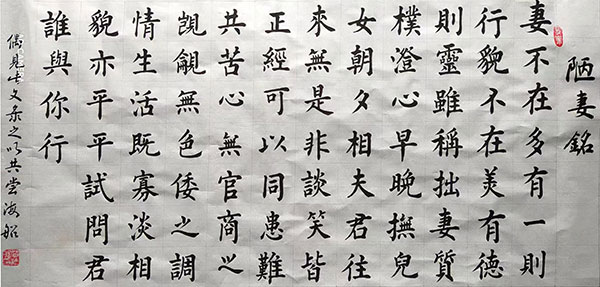 陋妻銘
妻不在多有一則
行貌不在美有德
則靈雖稱拙妻質
樸澄心早晚撫兒
女朝夕相夫君往
來無是非談笑皆
正經可以同患難
共苦心無官商之
覬覦無色倭之調
情生活既寡淡相
貌亦平平試問君
誰與你行
偶見此文录之以共賞海船